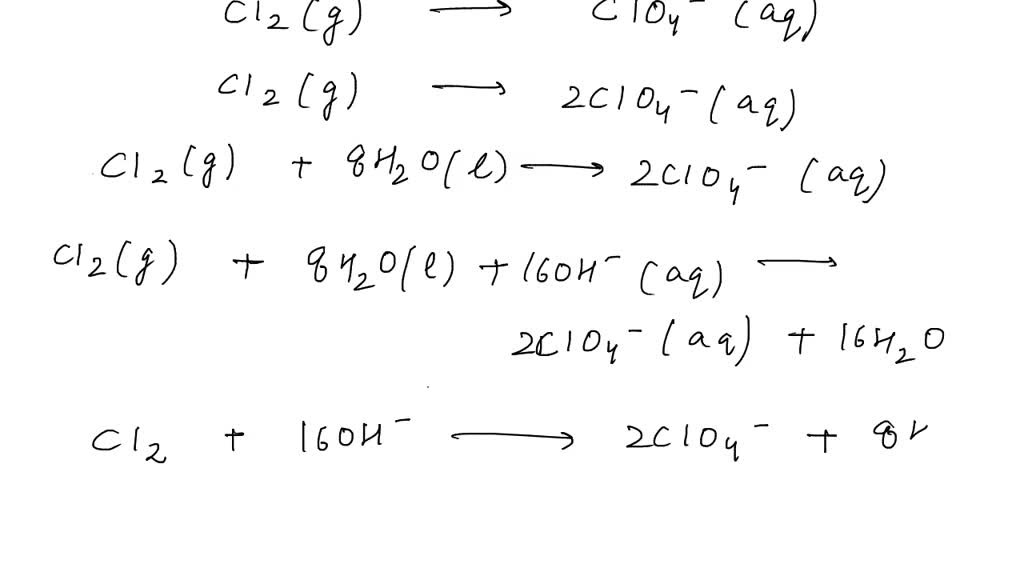 Cl₂(g) ⟶ ClO₄⁻ (aq)
Cl₂(g) ⟶ 2ClO₄⁻(aq)
Cl₂(g) + 8H₂O(l) ⟶ 2ClO₄⁻ (aq)
Cl₂(g) + 8H₂O(l) + 16OH⁻ (aq) ⟶
2ClO₄⁻(aq) + 16H₂O
Cl₂ + 16OH⁻ ⟶ 2ClO₄⁻ + 8